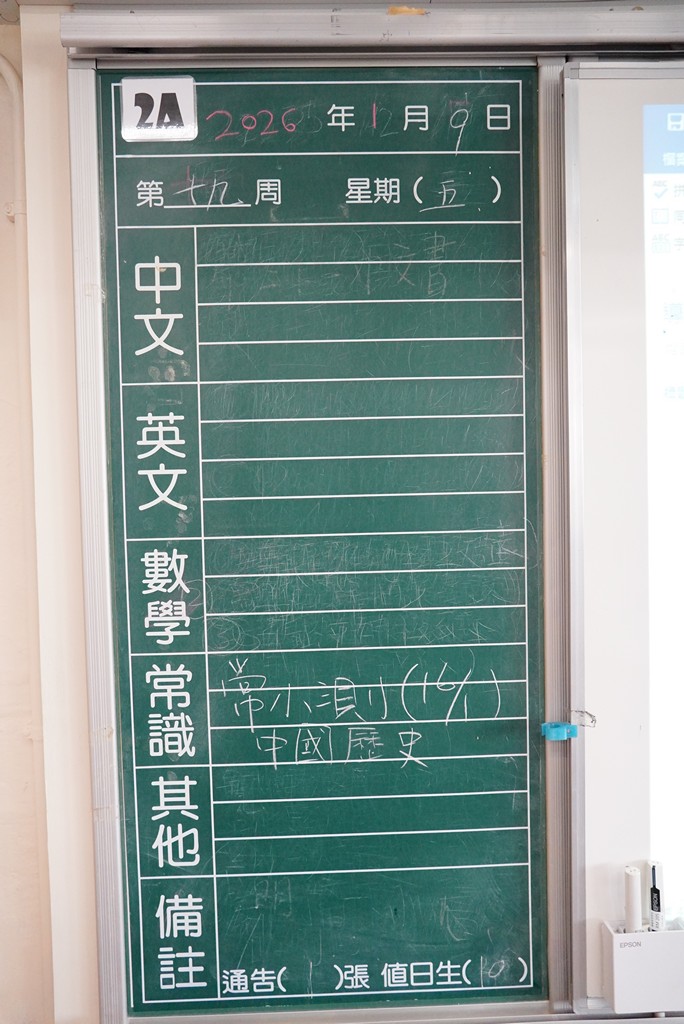 2A 2026 年 1 月 9 日
第 十九 周 星期 ( 五 )
中文
英文
數學
常識
常小測(16/1)
中國歷史
其他
備註
通告( 1 )張 值日生( 10 )
EPSON